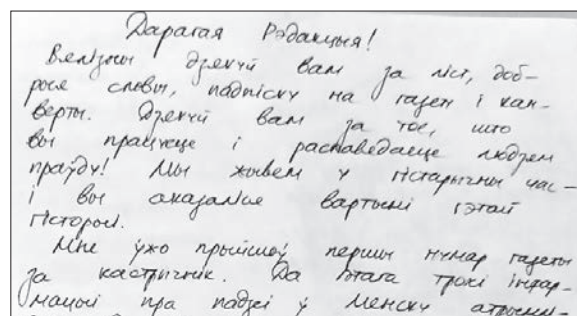 Дарагая Рэдакцыя!
Вялізны дзякуй вам за ліст, доб-
рыя словы, падпіску на газету і кан-
верты. Дзякуй вам за тое, што
вы працуеце і распаведаеце людзем
праўду! Мы жывем у гістарычны час-
і вы аказаліся вартымі гэтай
гісторыі.
Мне ўжо прыйшоў першы нумар газеты
за кастрычнік. Да этага трохі інфар-
мацыі пра падзеі ў Менску атрымлі-